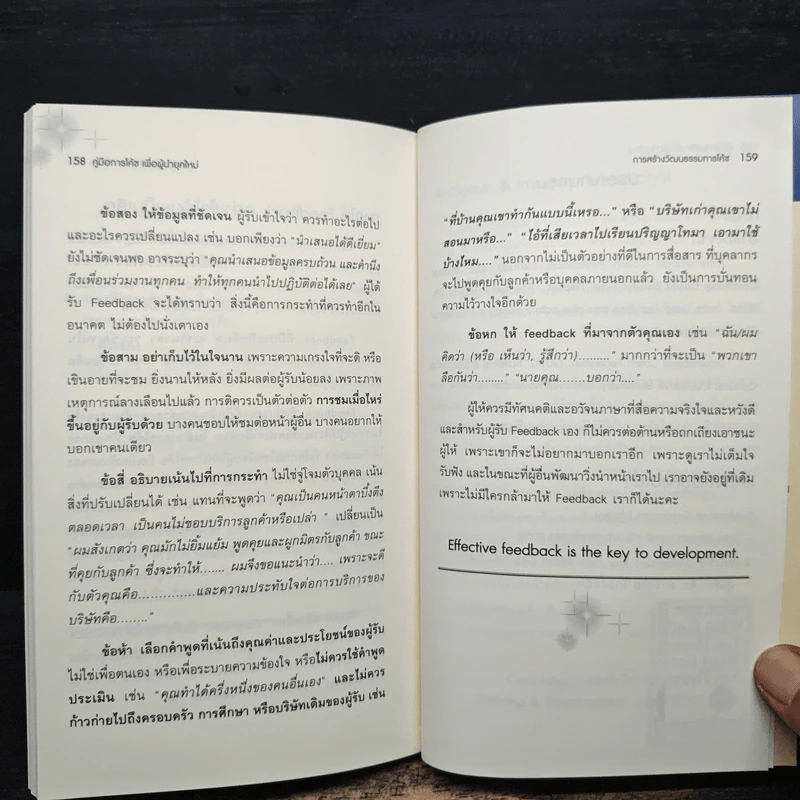 158 คู่มือการโค้ช เพื่อผู้นำยุคใหม่
ข้อสอง ให้ข้อมูลที่ชัดเจน ผู้รับเข้าใจว่า ควรทำอะไรต่อไป
และอะไรควรเปลี่ยนแปลง เช่น บอกเพียงว่า "นำเสนอได้ดีเยี่ยม"
ยังไม่ชัดเจนพอ อาจระบุว่า "คุณนำเสนอข้อมูลครบถ้วน และคำนึง
ถึงเพื่อนร่วมงานทุกคน ทำให้ทุกคนนำไปปฏิบัติต่อได้เลย" ผู้ได้
รับ Feedback จะได้ทราบว่า สิ่งนี้คือการกระทำที่ควรทำอีกใน
อนาคต ไม่ต้องไปนั่งเดาเอง
ข้อสาม อย่าเก็บไว้ในใจนาน เพราะความเกรงใจที่จะติ หรือ
เขินอายที่จะชม ยิ่งนานให้หลัง ยิ่งมีผลต่อผู้รับน้อยลง เพราะภาพ
เหตุการณ์ลางเลือนไปแล้ว การติควรเป็นตัวต่อตัว การชมเมื่อไหร่
ขึ้นอยู่กับผู้รับด้วย บางคนชอบให้ชมต่อหน้าผู้อื่น บางคนอยากให้
บอกเขาคนเดียว
ข้อสี่ อธิบายเน้นไปที่การกระทำ ไม่ใช่จู่โจมตัวบุคคล เน้น
สิ่งที่ปรับเปลี่ยนได้ เช่น แทนที่จะพูดว่า "คุณเป็นคนหน้าตาบึ้งตึง
ตลอดเวลา เป็นคนไม่ชอบบริการลูกค้าหรือเปล่า " เปลี่ยนเป็น
"ผมสังเกตว่า คุณมักไม่ยิ้มแย้ม พูดคุยและผูกมิตรกับลูกค้า ขณะ
ที่คุยกับลูกค้า ซึ่งจะทำให้....... ผมจึงขอแนะนำว่า.... เพราะจะดี
กับตัวคุณคือ..............และความประทับใจต่อการบริการของ
บริษัทคือ........"
ข้อห้า เลือกคำพูดที่เน้นถึงคุณค่าและประโยชน์ของผู้รับ
ไม่ใช่เพื่อตนเอง หรือเพื่อระบายความข้องใจ หรือไม่ควรใช้คำพูด
ประเมิน เช่น "คุณทำได้ครึ่งหนึ่งของคนอื่นเอง" และไม่ควร
ก้าวก่ายไปถึงครอบครัว การศึกษา หรือบริษัทเดิมของผู้รับ เช่น
การสร้างวัฒนธรรมการโค้ช 159
"ที่บ้านคุณเขาทำกันแบบนี้เหรอ..." หรือ "บริษัทเก่าคุณเขาไม่
สอนมาหรือ..." "ไอ้ที่เสียเวลาไปเรียนปริญญาโทมา เอามาใช้
บ้างไหม...." นอกจากไม่เป็นตัวอย่างที่ดีในการสื่อสาร ที่บุคลากร
จะไปพูดคุยกับลูกค้าหรือบุคคลภายนอกแล้ว ยังเป็นการบั่นทอน
ความไว้วางใจอีกด้วย
ข้อหก ให้ feedback ที่มาจากตัวคุณเอง เช่น "ฉัน/ผม
คิดว่า (หรือ เห็นว่า, รู้สึกว่า)........." มากกว่าที่จะเป็น "พวกเขา
ลือกันว่า......." "นายคุณ.......บอกว่า...."
ผู้ให้ควรมีทัศนคติและอวัจนภาษาที่สื่อความจริงใจและหวังดี
และสำหรับผู้รับ Feedback เอง ก็ไม่ควรต่อต้านหรือถกเถียงเอาชนะ
ผู้ให้ เพราะเขาก็จะไม่อยากมาบอกเราอีก เพราะดูเราไม่เต็มใจ
รับฟัง และในขณะที่ผู้อื่นพัฒนาวิ่งนำหน้าเราไป เราอาจยังอยู่ที่เดิม
เพราะไม่มีใครกล้ามาให้ Feedback เราก็ได้นะคะ
Effective feedback is the key to development.